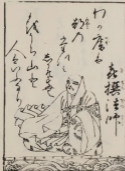 喜撰法師
わか庵は
都の
たつみ
しかそすむ
世をうち山と
人はいふなり